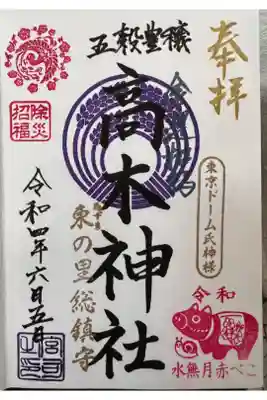 奉拝
五穀豊穣
高木神社
東京ドーム氏神様
東の里総鎮守
令和四年六月五日
除災
招福
令和
水無月赤べこ
宮司
之印